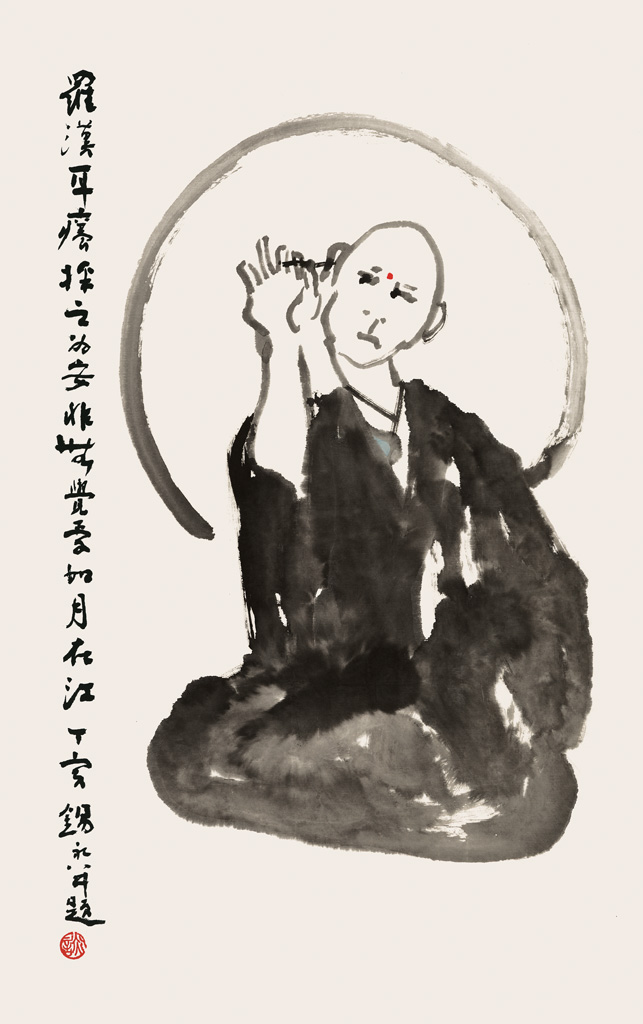 羅漢耳癢採之為安非無覺受如月在江丁亥錫永並題